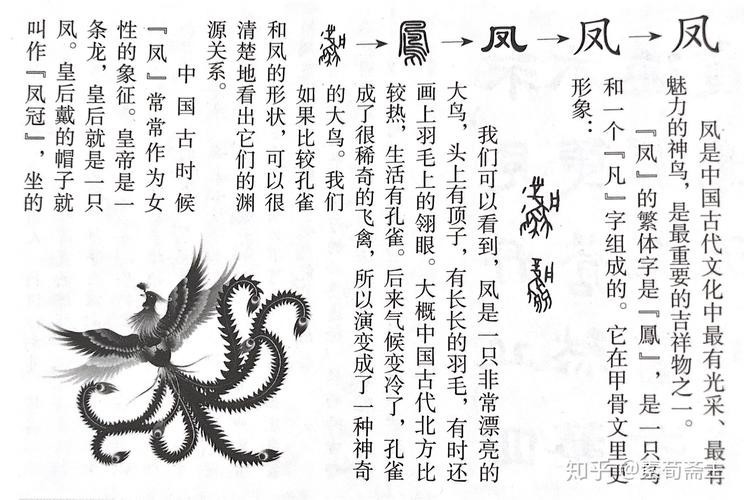 → 鳳 → 凤 → 凤 → 凤
凤是中国古代文化中最有光采、最有
魅力的神鸟，是最重要的吉祥物之一。
『凤』的繁体字是『鳳』，是一只鸟
和一个『凡』字组成的。它在甲骨文里更
形象：
我们可以看到，凤是一只非常漂亮的
大鸟，头上有顶子，有长长的羽毛，有时还
画上羽毛上的翎眼。大概中国古代北方比
较热，生活有孔雀。后来气候变冷了，孔雀
成了很稀奇的飞禽，所以演变成了一种神奇
的大鸟。我们
如果比较孔雀
和凤的形状，可以很
清楚地看出它们的渊
源关系。
中国古时候
『凤』常常作为女
性的象征。皇帝是一
条龙，皇后就是一只
凤。皇后戴的帽子就
叫作『凤冠』，坐的
知乎